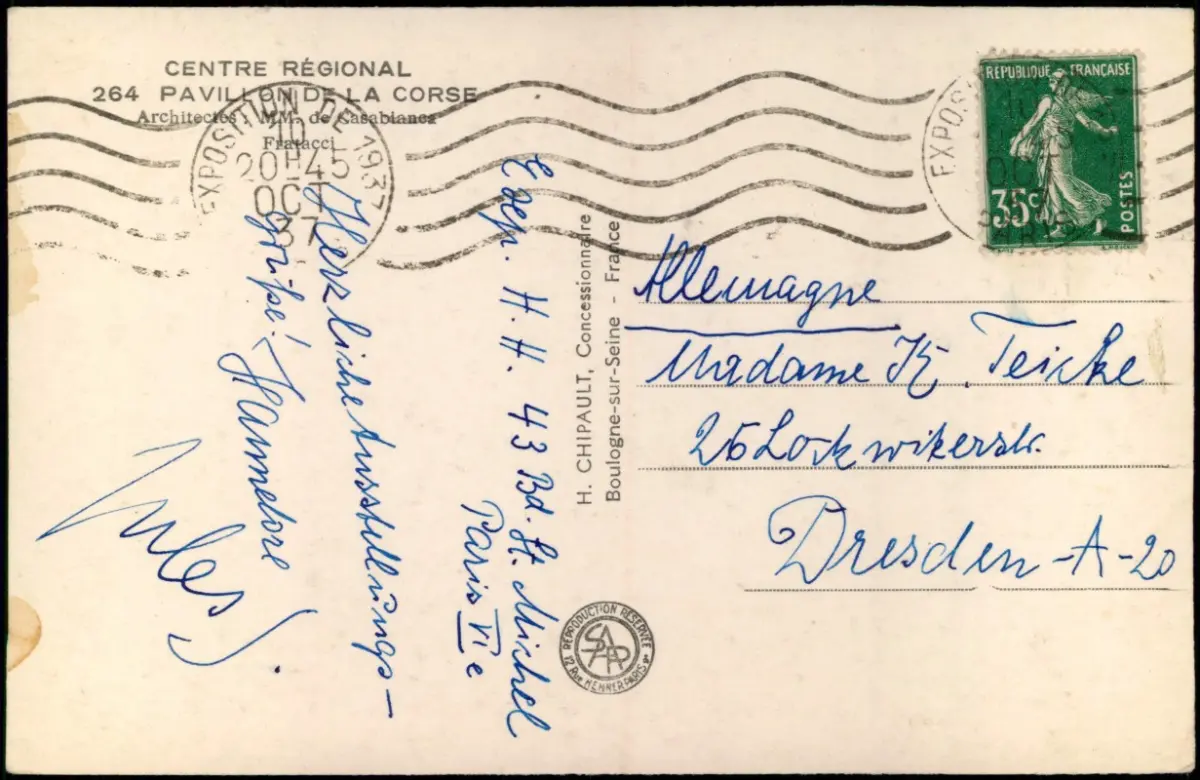 CENTRE RÉGIONAL
264 PAVILLON DE LA CORSE
Architectes : MM. de Casabianca
Fratacci
EXPOSITION DE 1937
10
20H45
OCT
37
EXPOSI
OC
RÉPUBLIQUE FRANÇAISE
35c
POSTES
Herzliche Ausstellungs-
grüße!
Hannelore
Jules J.
Exep. H. H. 43 Bd. St. Michel
Paris VIe
H. CHIPAULT, Concessionnaire
Boulogne-sur-Seine - France
Allemagne
Madame K. Teicke
26 Lockwitzerstr.
Dresden-A-20
REPRODUCTION RÉSERVÉE
SPADEM
12 Rue HENNER PARIS 9e